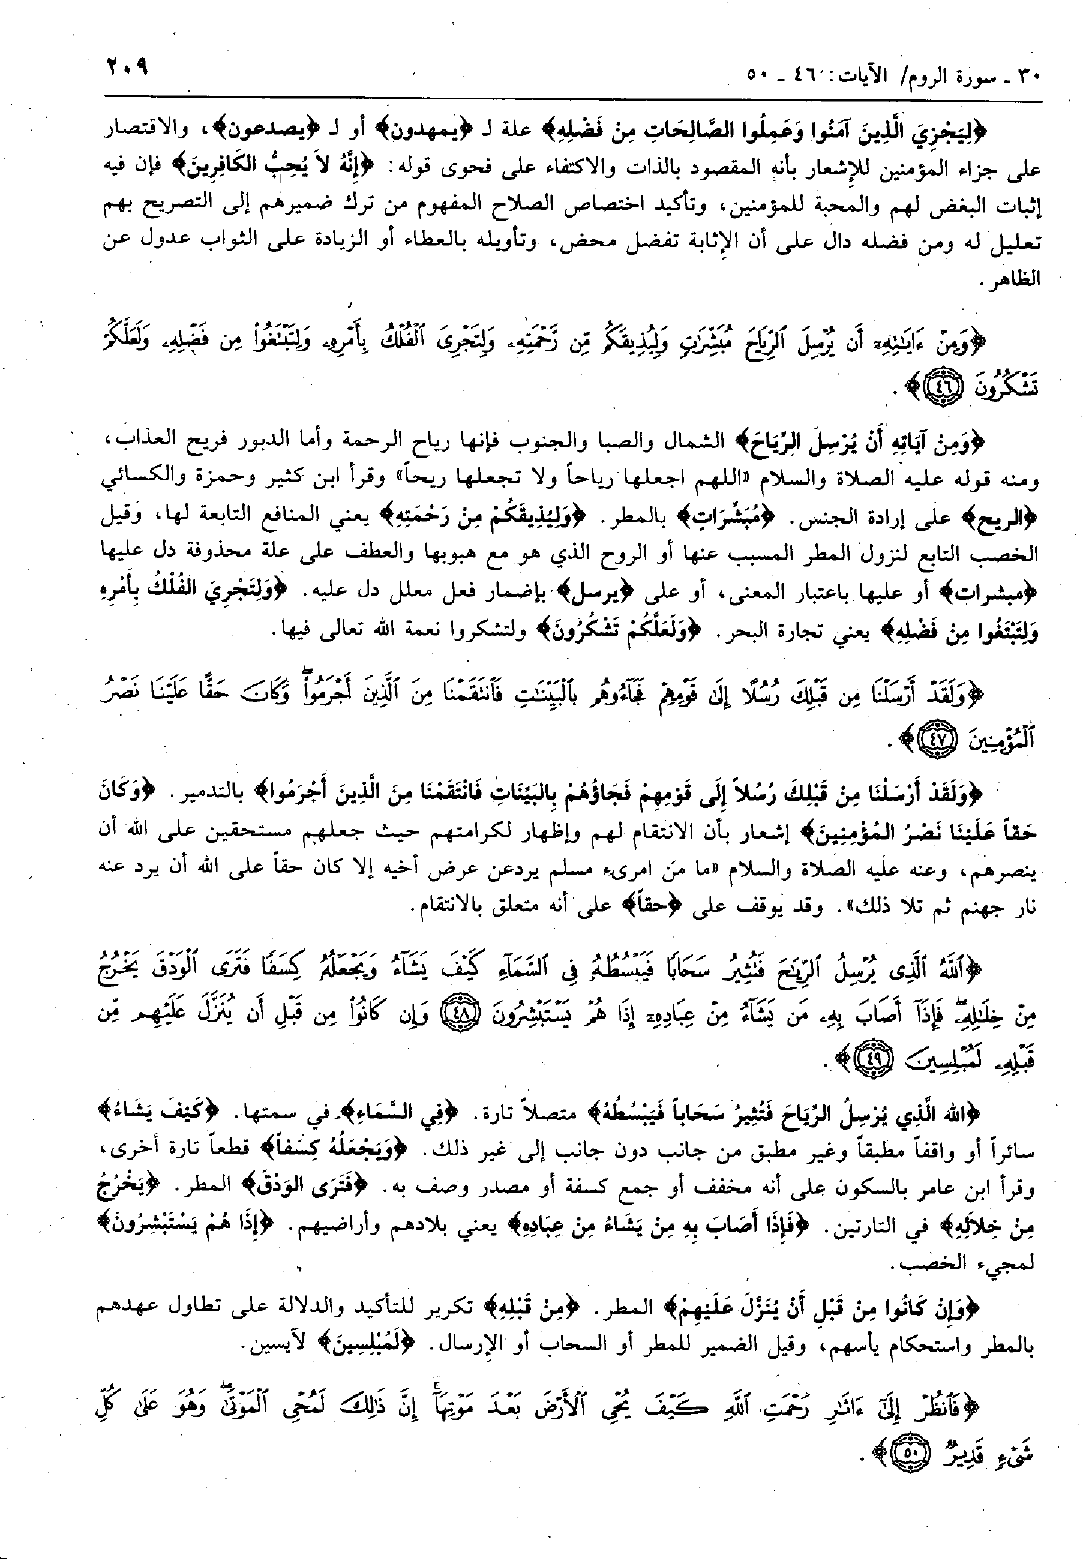 ٣٠ - سورة الروم/ الآيات: ٤٦ - ٥٠
٢٠٩
﴿لِيَجْزِيَ الَّذِينَ آمَنُوا وَعَمِلُوا الصَّالِحَاتِ مِنْ فَضْلِهِ﴾ علة لـ ﴿يمهدون﴾ أو لـ ﴿يصدعون﴾، والاقتصار
على جزاء المؤمنين للإِشعار بأنه المقصود بالذات والاكتفاء على فحوى قوله: ﴿إِنَّهُ لاَ يُحِبُّ الكَافِرِينَ﴾ فإن فيه
إثبات البغض لهم والمحبة للمؤمنين، وتأكيد اختصاص الصلاح المفهوم من ترك ضميرهم إلى التصريح بهم
تعليل له ومن فضله دال على أن الإِثابة تفضل محض، وتأويله بالعطاء أو الزيادة على الثواب عدول عن
الظاهر.
﴿وَمِنْ ءَايَـٰتِهِۦٓ أَن يُرْسِلَ ٱلرِّيَاحَ مُبَشِّرَٰتٍ وَلِيُذِيقَكُم مِّن رَّحْمَتِهِۦ وَلِتَجْرِىَ ٱلْفُلْكُ بِأَمْرِهِۦ وَلِتَبْتَغُوا۟ مِن فَضْلِهِۦ وَلَعَلَّكُمْ
تَشْكُرُونَ ٤٦﴾.
﴿وَمِنْ آيَاتِهِ أَنْ يُرْسِلَ الرِّيَاحَ﴾ الشمال والصبا والجنوب فإنها رياح الرحمة وأما الدبور فريح العذاب،
ومنه قوله عليه الصلاة والسلام «اللهم اجعلها رياحاً ولا تجعلها ريحاً» وقرأ ابن كثير وحمزة والكسائي
﴿الريح﴾ على إرادة الجنس. ﴿مُبَشِّرَاتٍ﴾ بالمطر. ﴿وَلِيُذِيقَكُمْ مِنْ رَحْمَتِهِ﴾ يعني المنافع التابعة لها، وقيل
الخصب التابع لنزول المطر المسبب عنها أو الروح الذي هو مع هبوبها والعطف على علة محذوفة دل عليها
﴿مبشرات﴾ أو عليها باعتبار المعنى، أو على ﴿يرسل﴾ بإضمار فعل معلل دل عليه. ﴿وَلِتَجْرِيَ الفُلْكُ بِأَمْرِهِ
وَلِتَبْتَغُوا مِنْ فَضْلِهِ﴾ يعني تجارة البحر. ﴿وَلَعَلَّكُمْ تَشْكُرُونَ﴾ ولتشكروا نعمة الله تعالى فيها.
﴿وَلَقَدْ أَرْسَلْنَا مِن قَبْلِكَ رُسُلًا إِلَىٰ قَوْمِهِمْ فَجَآءُوهُم بِٱلْبَيِّنَـٰتِ فَٱنتَقَمْنَا مِنَ ٱلَّذِينَ أَجْرَمُوا۟ ۖ وَكَانَ حَقًّا عَلَيْنَا نَصْرُ
ٱلْمُؤْمِنِينَ ٤٧﴾.
﴿وَلَقَدْ أَرْسَلْنَا مِنْ قَبْلِكَ رُسُلاً إِلَى قَوْمِهِمْ فَجَاؤُهُمْ بِالبَيِّنَاتِ فَانْتَقَمْنَا مِنَ الَّذِينَ أَجْرَمُوا﴾ بالتدمير. ﴿وَكَانَ
حَقاً عَلَيْنَا نَصْرُ المُؤْمِنِينَ﴾ إشعار بأن الانتقام لهم وإظهار لكرامتهم حيث جعلهم مستحقين على الله أن
ينصرهم، وعنه عليه الصلاة والسلام «ما من امرىء مسلم يردعن عرض أخيه إلا كان حقاً على الله أن يرد عنه
نار جهنم ثم تلا ذلك». وقد يوقف على ﴿حقاً﴾ على أنه متعلق بالانتقام.
﴿ٱللَّهُ ٱلَّذِى يُرْسِلُ ٱلرِّيَـٰحَ فَتُثِيرُ سَحَابًا فَيَبْسُطُهُۥ فِى ٱلسَّمَآءِ كَيْفَ يَشَآءُ وَيَجْعَلُهُۥ كِسَفًا فَتَرَى ٱلْوَدْقَ يَخْرُجُ
مِنْ خِلَـٰلِهِۦ ۖ فَإِذَآ أَصَابَ بِهِۦ مَن يَشَآءُ مِنْ عِبَادِهِۦٓ إِذَا هُمْ يَسْتَبْشِرُونَ ٤٨ وَإِن كَانُوا۟ مِن قَبْلِ أَن يُنَزَّلَ عَلَيْهِم مِّن
قَبْلِهِۦ لَمُبْلِسِينَ ٤٩﴾.
﴿الله الَّذِي يُرْسِلُ الرِّيَاحَ فَتُثِيرُ سَحَاباً فَيَبْسُطُهُ﴾ متصلاً تارة. ﴿فِي السَّمَاءِ﴾ في سمتها. ﴿كَيْفَ يَشَاءُ﴾
سائراً أو واقفاً مطبقاً وغير مطبق من جانب دون جانب إلى غير ذلك. ﴿وَيَجْعَلُهُ كِسَفاً﴾ قطعاً تارة أخرى،
وقرأ ابن عامر بالسكون على أنه مخفف أو جمع كسفة أو مصدر وصف به. ﴿فَتَرَى الوَدْقَ﴾ المطر. ﴿يَخْرُجُ
مِنْ خِلاَلِهِ﴾ في التارتين. ﴿فَإِذَا أَصَابَ بِهِ مَنْ يَشَاءُ مِنْ عِبَادِهِ﴾ يعني بلادهم وأراضيهم. ﴿إِذَا هُمْ يَسْتَبْشِرُونَ﴾
لمجيء الخصب.
﴿وَإِن كَانُوا مِنْ قَبْلِ أَنْ يُنَزَّلَ عَلَيْهِمْ﴾ المطر. ﴿مِنْ قَبْلِهِ﴾ تكرير للتأكيد والدلالة على تطاول عهدهم
بالمطر واستحكام يأسهم، وقيل الضمير للمطر أو السحاب أو الإِرسال. ﴿لَمُبْلِسِينَ﴾ لآيسين.
﴿فَٱنظُرْ إِلَىٰٓ ءَاثَـٰرِ رَحْمَتِ ٱللَّهِ كَيْفَ يُحْىِ ٱلْأَرْضَ بَعْدَ مَوْتِهَآ ۚ إِنَّ ذَٰلِكَ لَمُحْىِ ٱلْمَوْتَىٰ ۖ وَهُوَ عَلَىٰ كُلِّ
شَىْءٍ قَدِيرٌ ٥٠﴾.